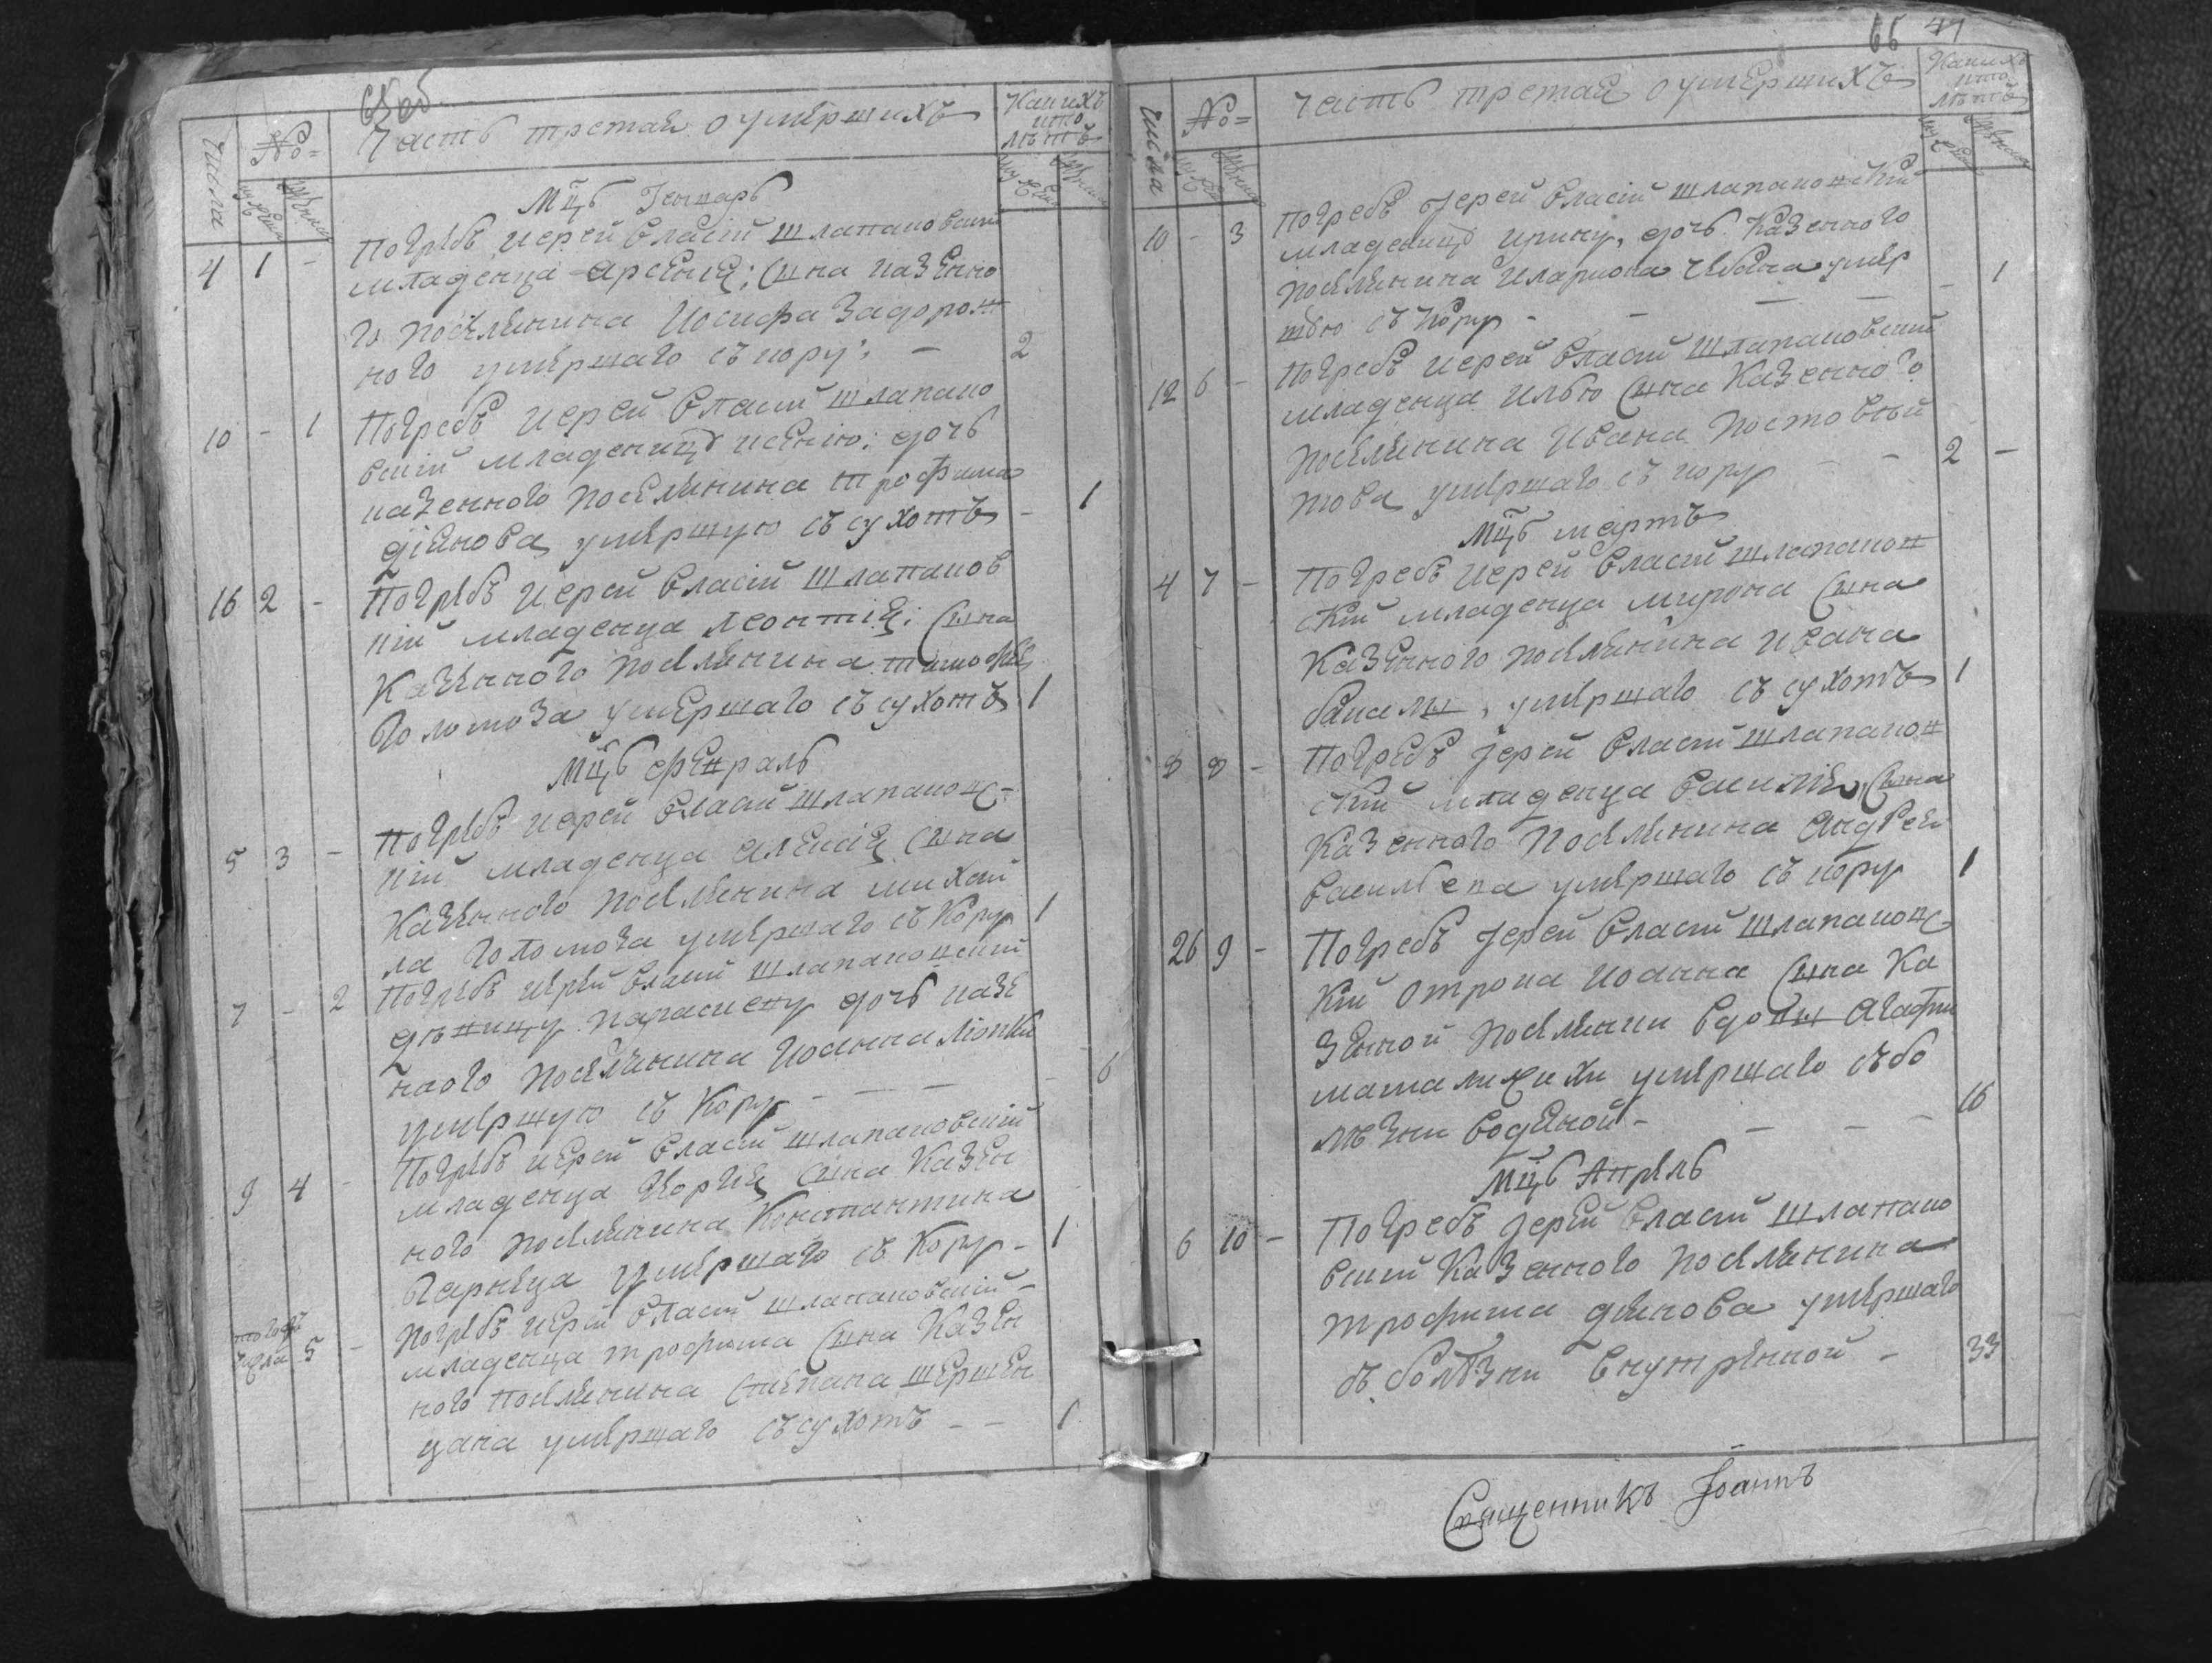 Часть третая о умершихъ
Какихъ
лѣтъ
числа
№
Мцъ Генварь
4 1 - Погребъ иерей Власій Шлапановскій
младенца Арсения: Сына казенно
го поселянина Иосифа Задорож
ного умершаго съ кору: - 2
10 - 1 Погребъ Иерей Власий Шлапано
вский младеницу Ксению: дочь
казенного поселянина Трофима
Дянова умершую съ сухотъ - 1
16 2 - Погребъ Иерей Власій Шлапанов
кий младенца Леонтия: Сына
Казенного поселянина Тимофея
Голомоза умершаго съ сухотъ 1
Мцъ Февраль
5 3 - Погребъ иерей Власий Шлапановс-
кий младенца Алексия Сына
Казенного поселянина Михай
ла Голомоза умершаго съ Кору 1
7 - 2 Погребъ иерей Власий Шлапановский
девицу Параскеву дочь казе
нного поселянина Иоанна
умершую съ Кору - - - 6
9 4 - Погребъ иерей Власий Шлапановский
младенца Сына Казен
ного поселянина Константина
умершаго съ Кору - 1
тогожъ
числа 5 - Погребъ иерей Власий Шлапановский -
младенца Трофима Сына Казен
ного поселянина Степана Шершен
умершаго съ сухотъ - - 1
66 47
Часть третая о умершихъ
Какихъ
лѣтъ
числа
№
10 - 3 Погребъ Іерей Власій Шлапановский
младеницу Ирину, дочь Казенного
поселянина Илариона Чебана умер
шую съ Кору - - - 1
12 6 - Погребъ иерей Власий Шлапановский
младенца Илью Сына Казенного
поселянина Ивана Постовый
това умершаго съ кору - - 2 -
Мцъ мартъ
4 7 - Погребъ иерей Власий Шлапанов
ский младенца Мирона Сына
Казенного поселянина Ивана
умершаго съ сухотъ 1
8 8 - Погребъ Іерей Власий Шлапанов
ский младенца Василия, Сына
Казенного поселянина Андрея
умершаго съ кору 1
26 9 - Погребъ Іерей Власий Шлапановс
кий отрока Иоанна Сына Ка
зенной поселянки вдовы Агафии
умершаго съ бо
лезни водяной - - - 16
Мцъ Апрель
6 10 - Погребъ Іерей Власий Шлапано
вский Казенного поселянина
Трофима Дянова умершаго
съ болѣзни внутренной - 33
Священникъ Іоаннъ